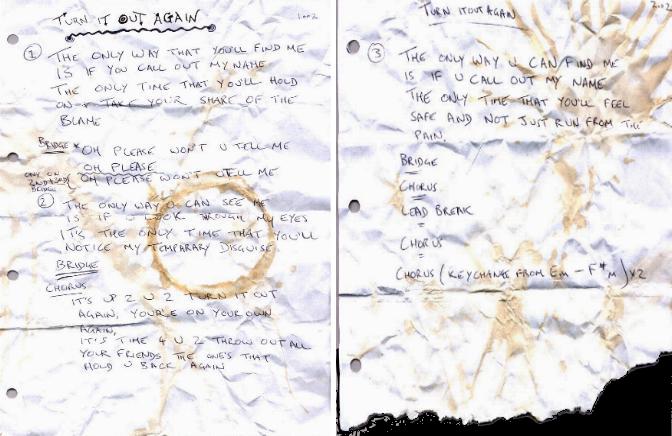 TURN IT OUT AGAIN
1 OF 2
① THE ONLY WAY THAT YOU'LL FIND ME
IS IF YOU CALL OUT MY NAME
THE ONLY TIME THAT YOU'LL HOLD
ON + TAKE YOUR SHARE OF THE
BLAME
BRIDGE * OH PLEASE WON'T U TELL ME
OH PLEASE
ONLY ON 2ND BRIDGE OH PLEASE WON'T U TELL ME
② THE ONLY WAY U CAN SEE ME
IS IF U LOOK THROUGH MY EYES
IT'S THE ONLY TIME THAT YOU'LL
NOTICE MY TEMPARARY DISGUISE
BRIDGE
CHORUS
IT'S UP 2 U 2 TURN IT OUT
AGAIN, YOUR'E ON YOUR OWN
AGAIN,
IT'S TIME 4 U 2 THROW OUT ALL
YOUR FRIENDS THE ONE'S THAT
HOLD U BACK AGAIN
TURN IT OUT AGAIN
2 OF 2
③ THE ONLY WAY U CAN FIND ME
IS IF U CALL OUT MY NAME
THE ONLY TIME THAT YOU'LL FEEL
SAFE AND NOT JUST RUN FROM THE
PAIN.
BRIDGE
CHORUS
LEAD BREAK
CHORUS
CHORUS (KEYCHANGE FROM Em - F#m) x2